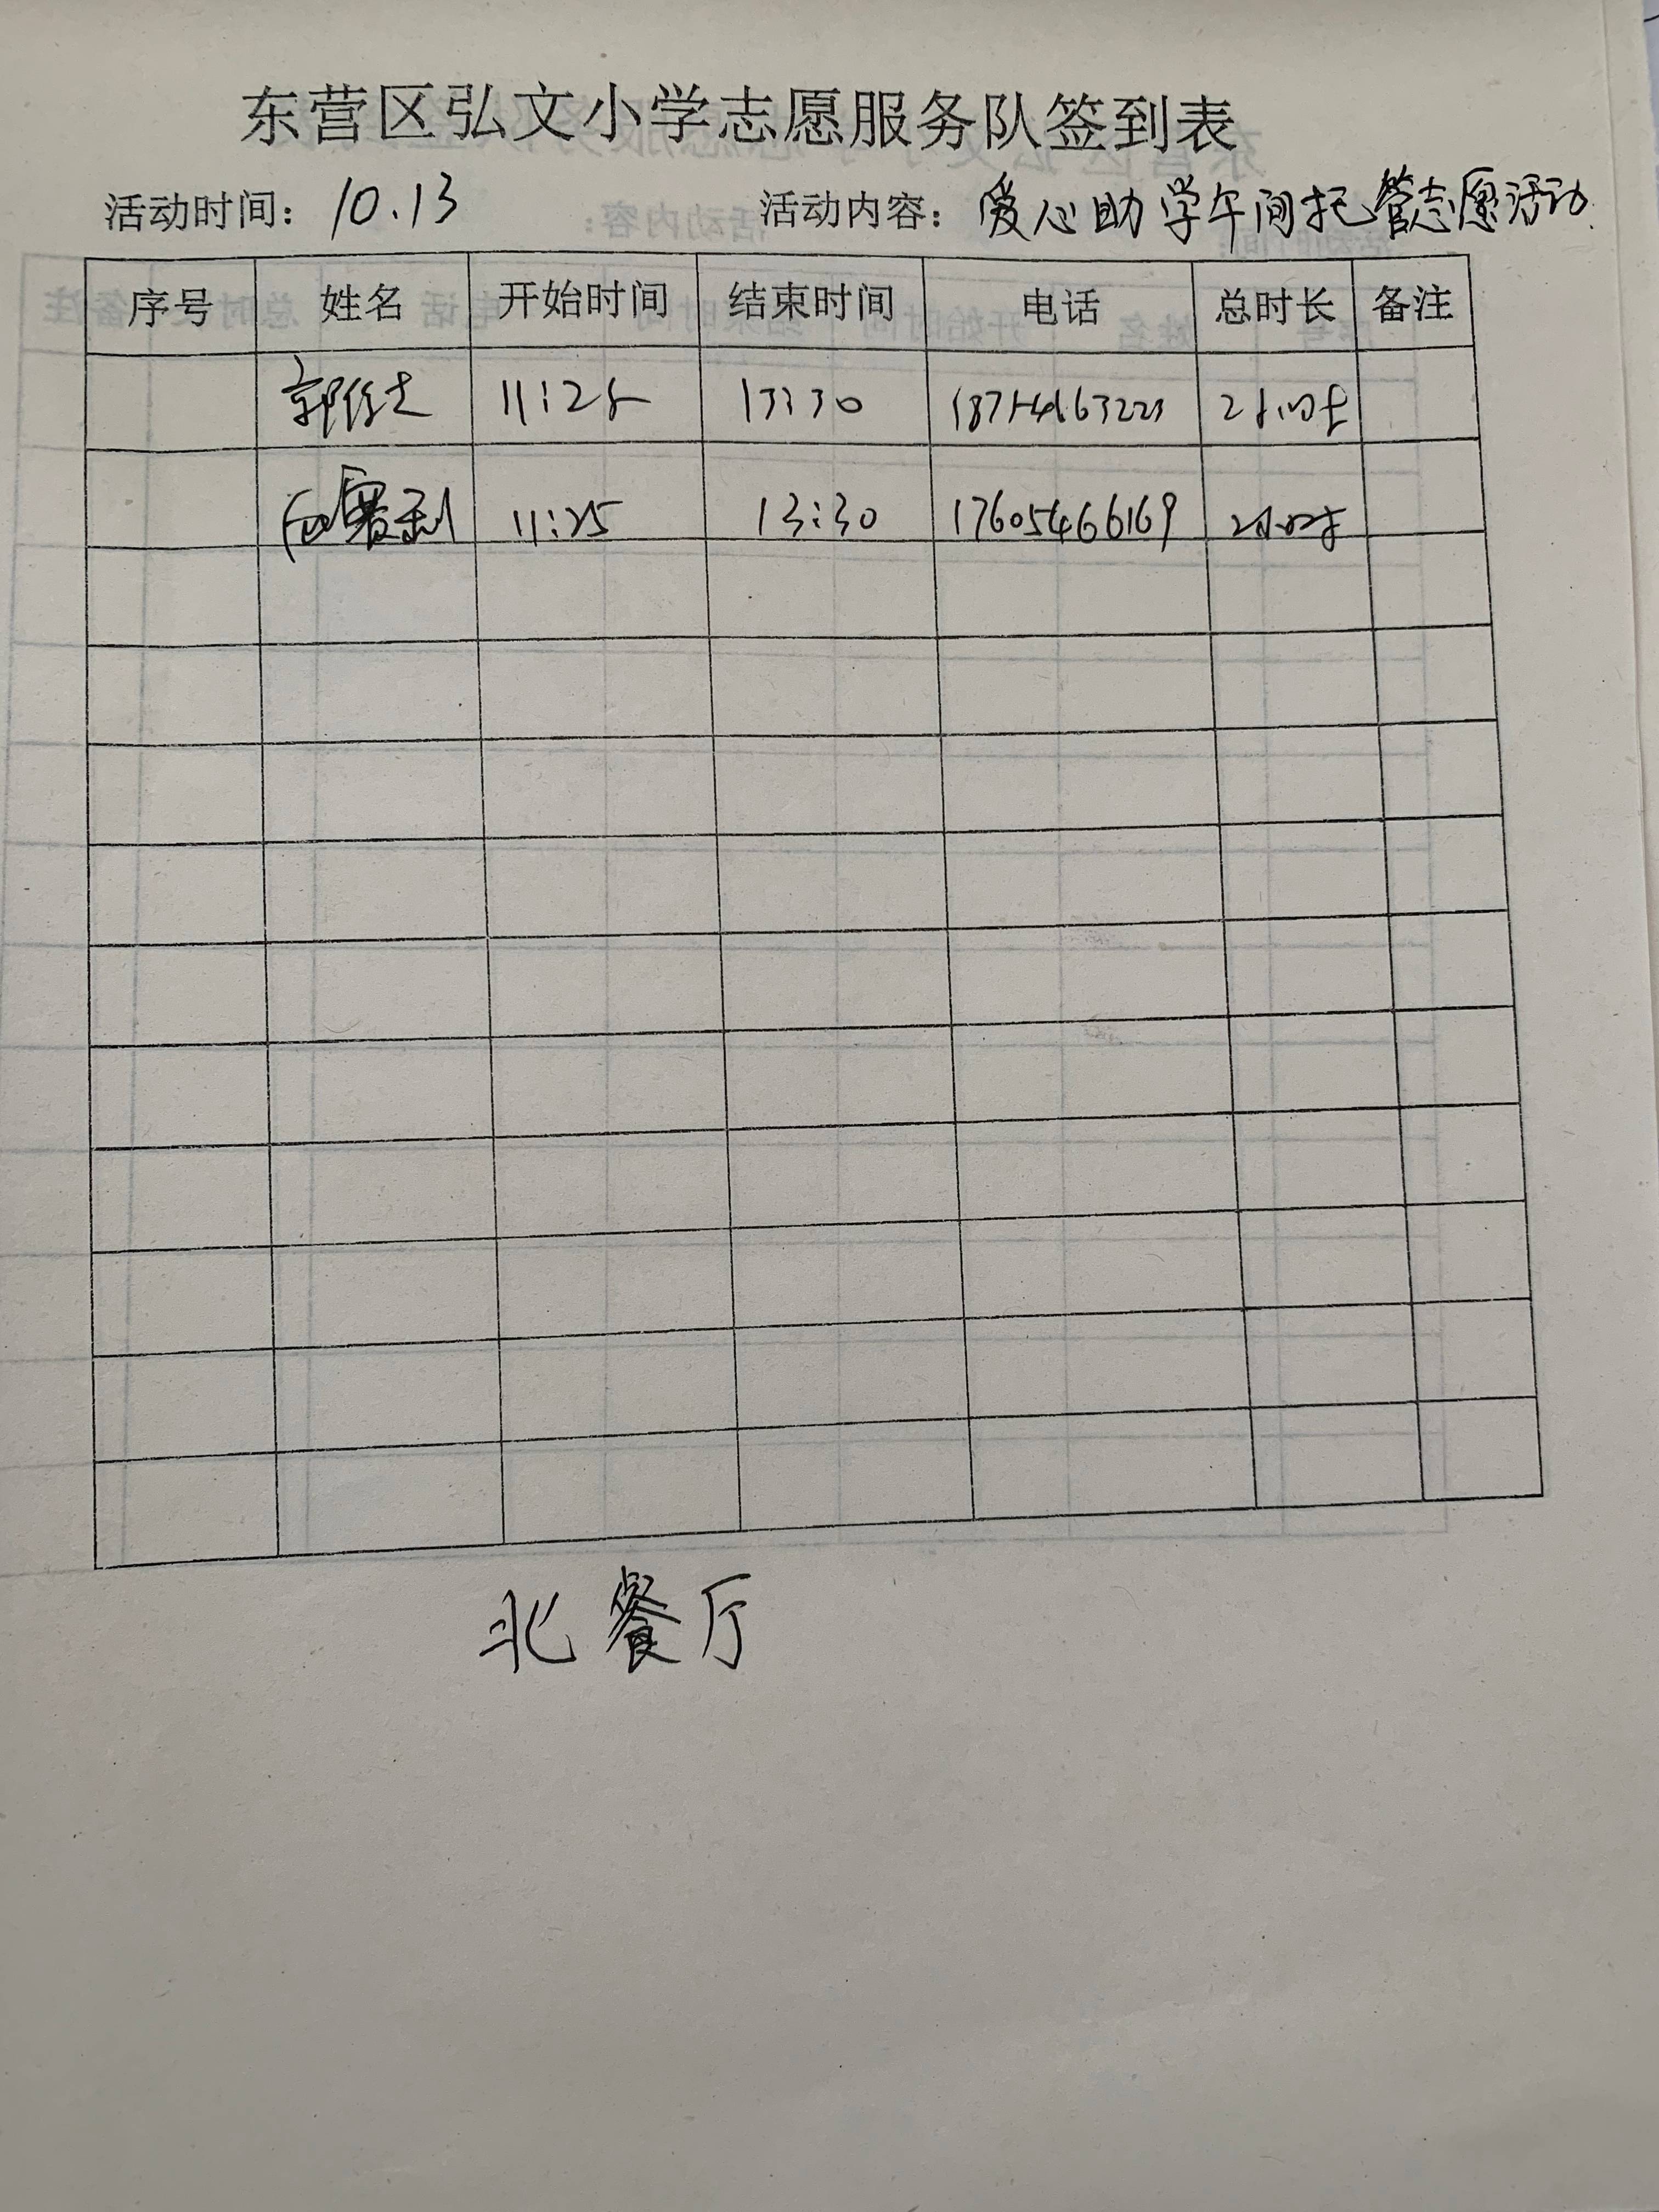 东营区弘文小学志愿服务队签到表
活动时间：10.13 活动内容：爱心助学午间托管志愿活动.
序号 姓名 开始时间 结束时间 电话 总时长 备注
郭 11:25 13:30 2小时
11:25 13:30 17605466169 2小时
北餐厅